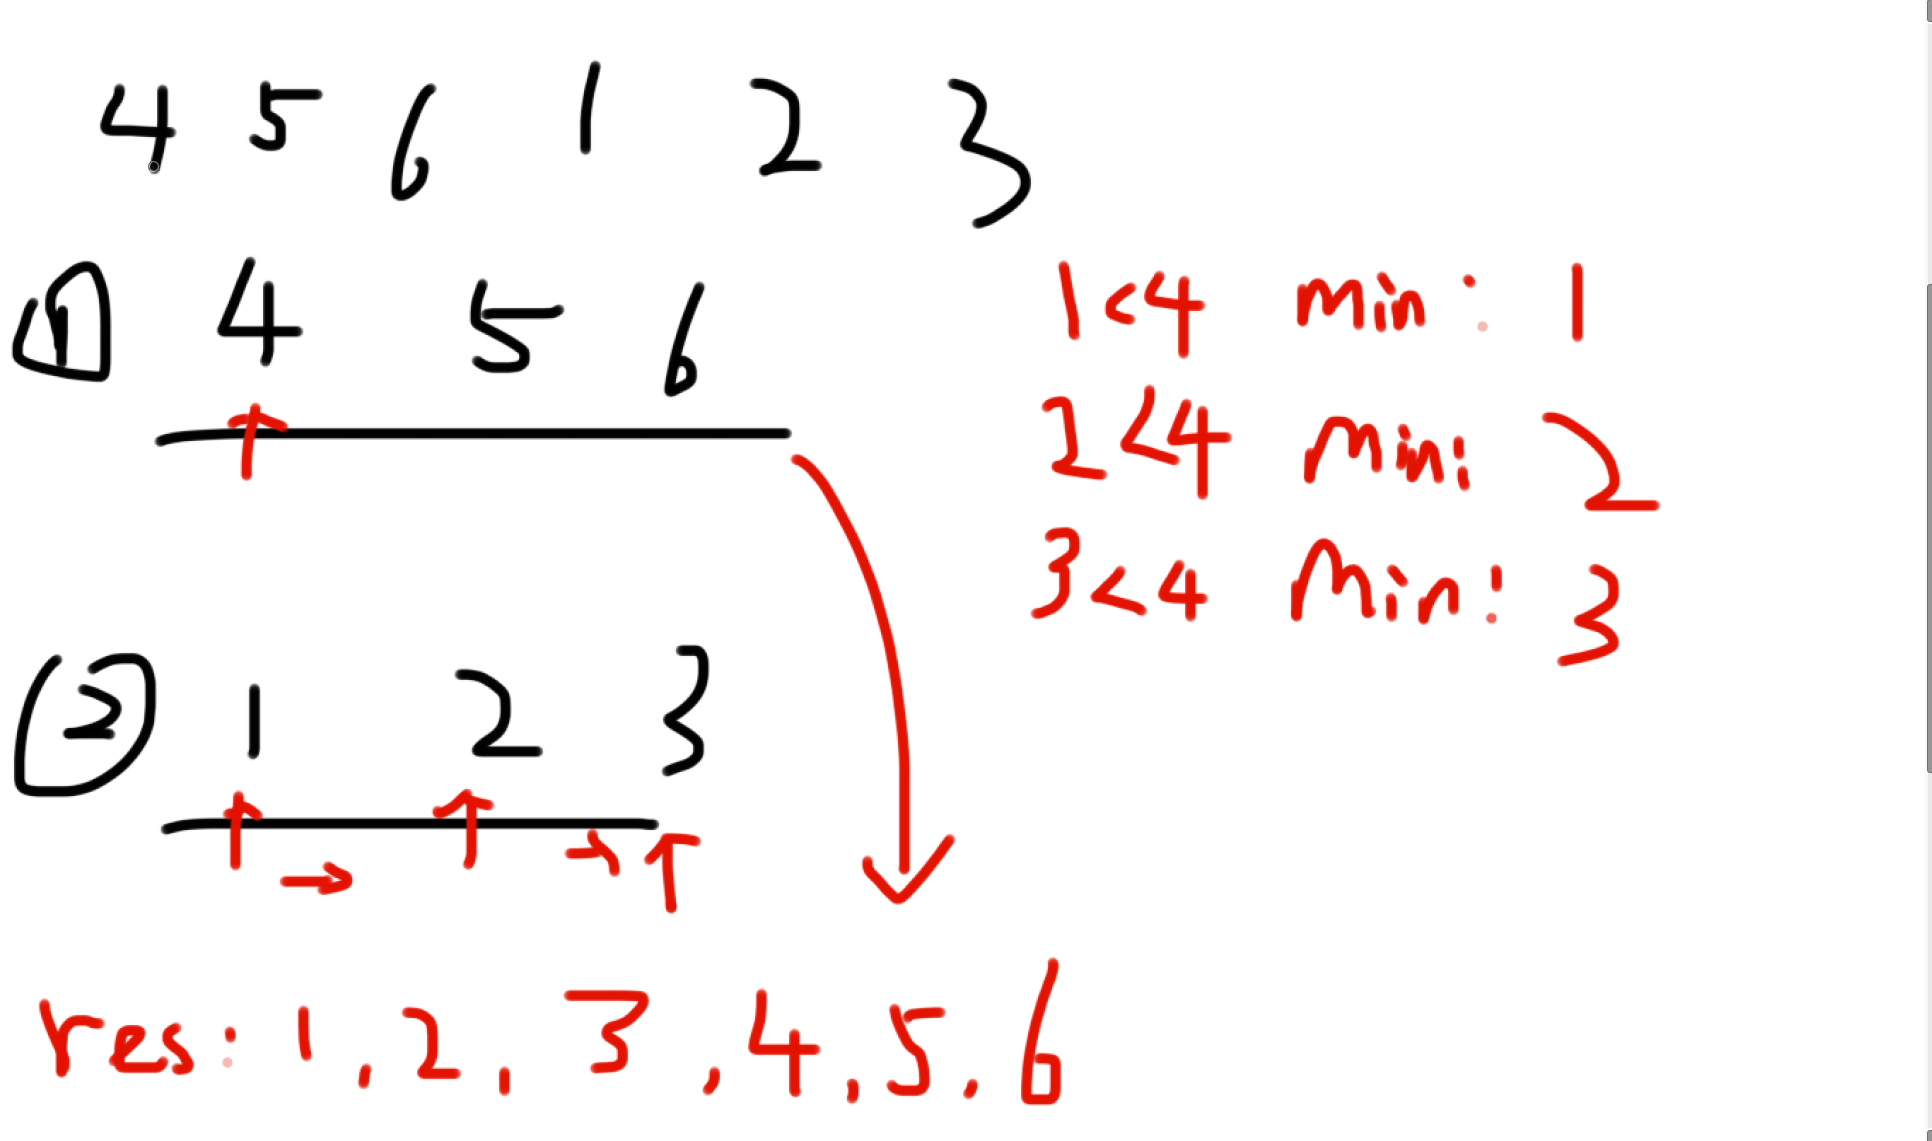 4 5 6 1 2 3
1 4 5 6
1<4 min: 1
2<4 min: 2
3<4 min: 3
2 1 2 3
res: 1, 2, 3, 4, 5, 6